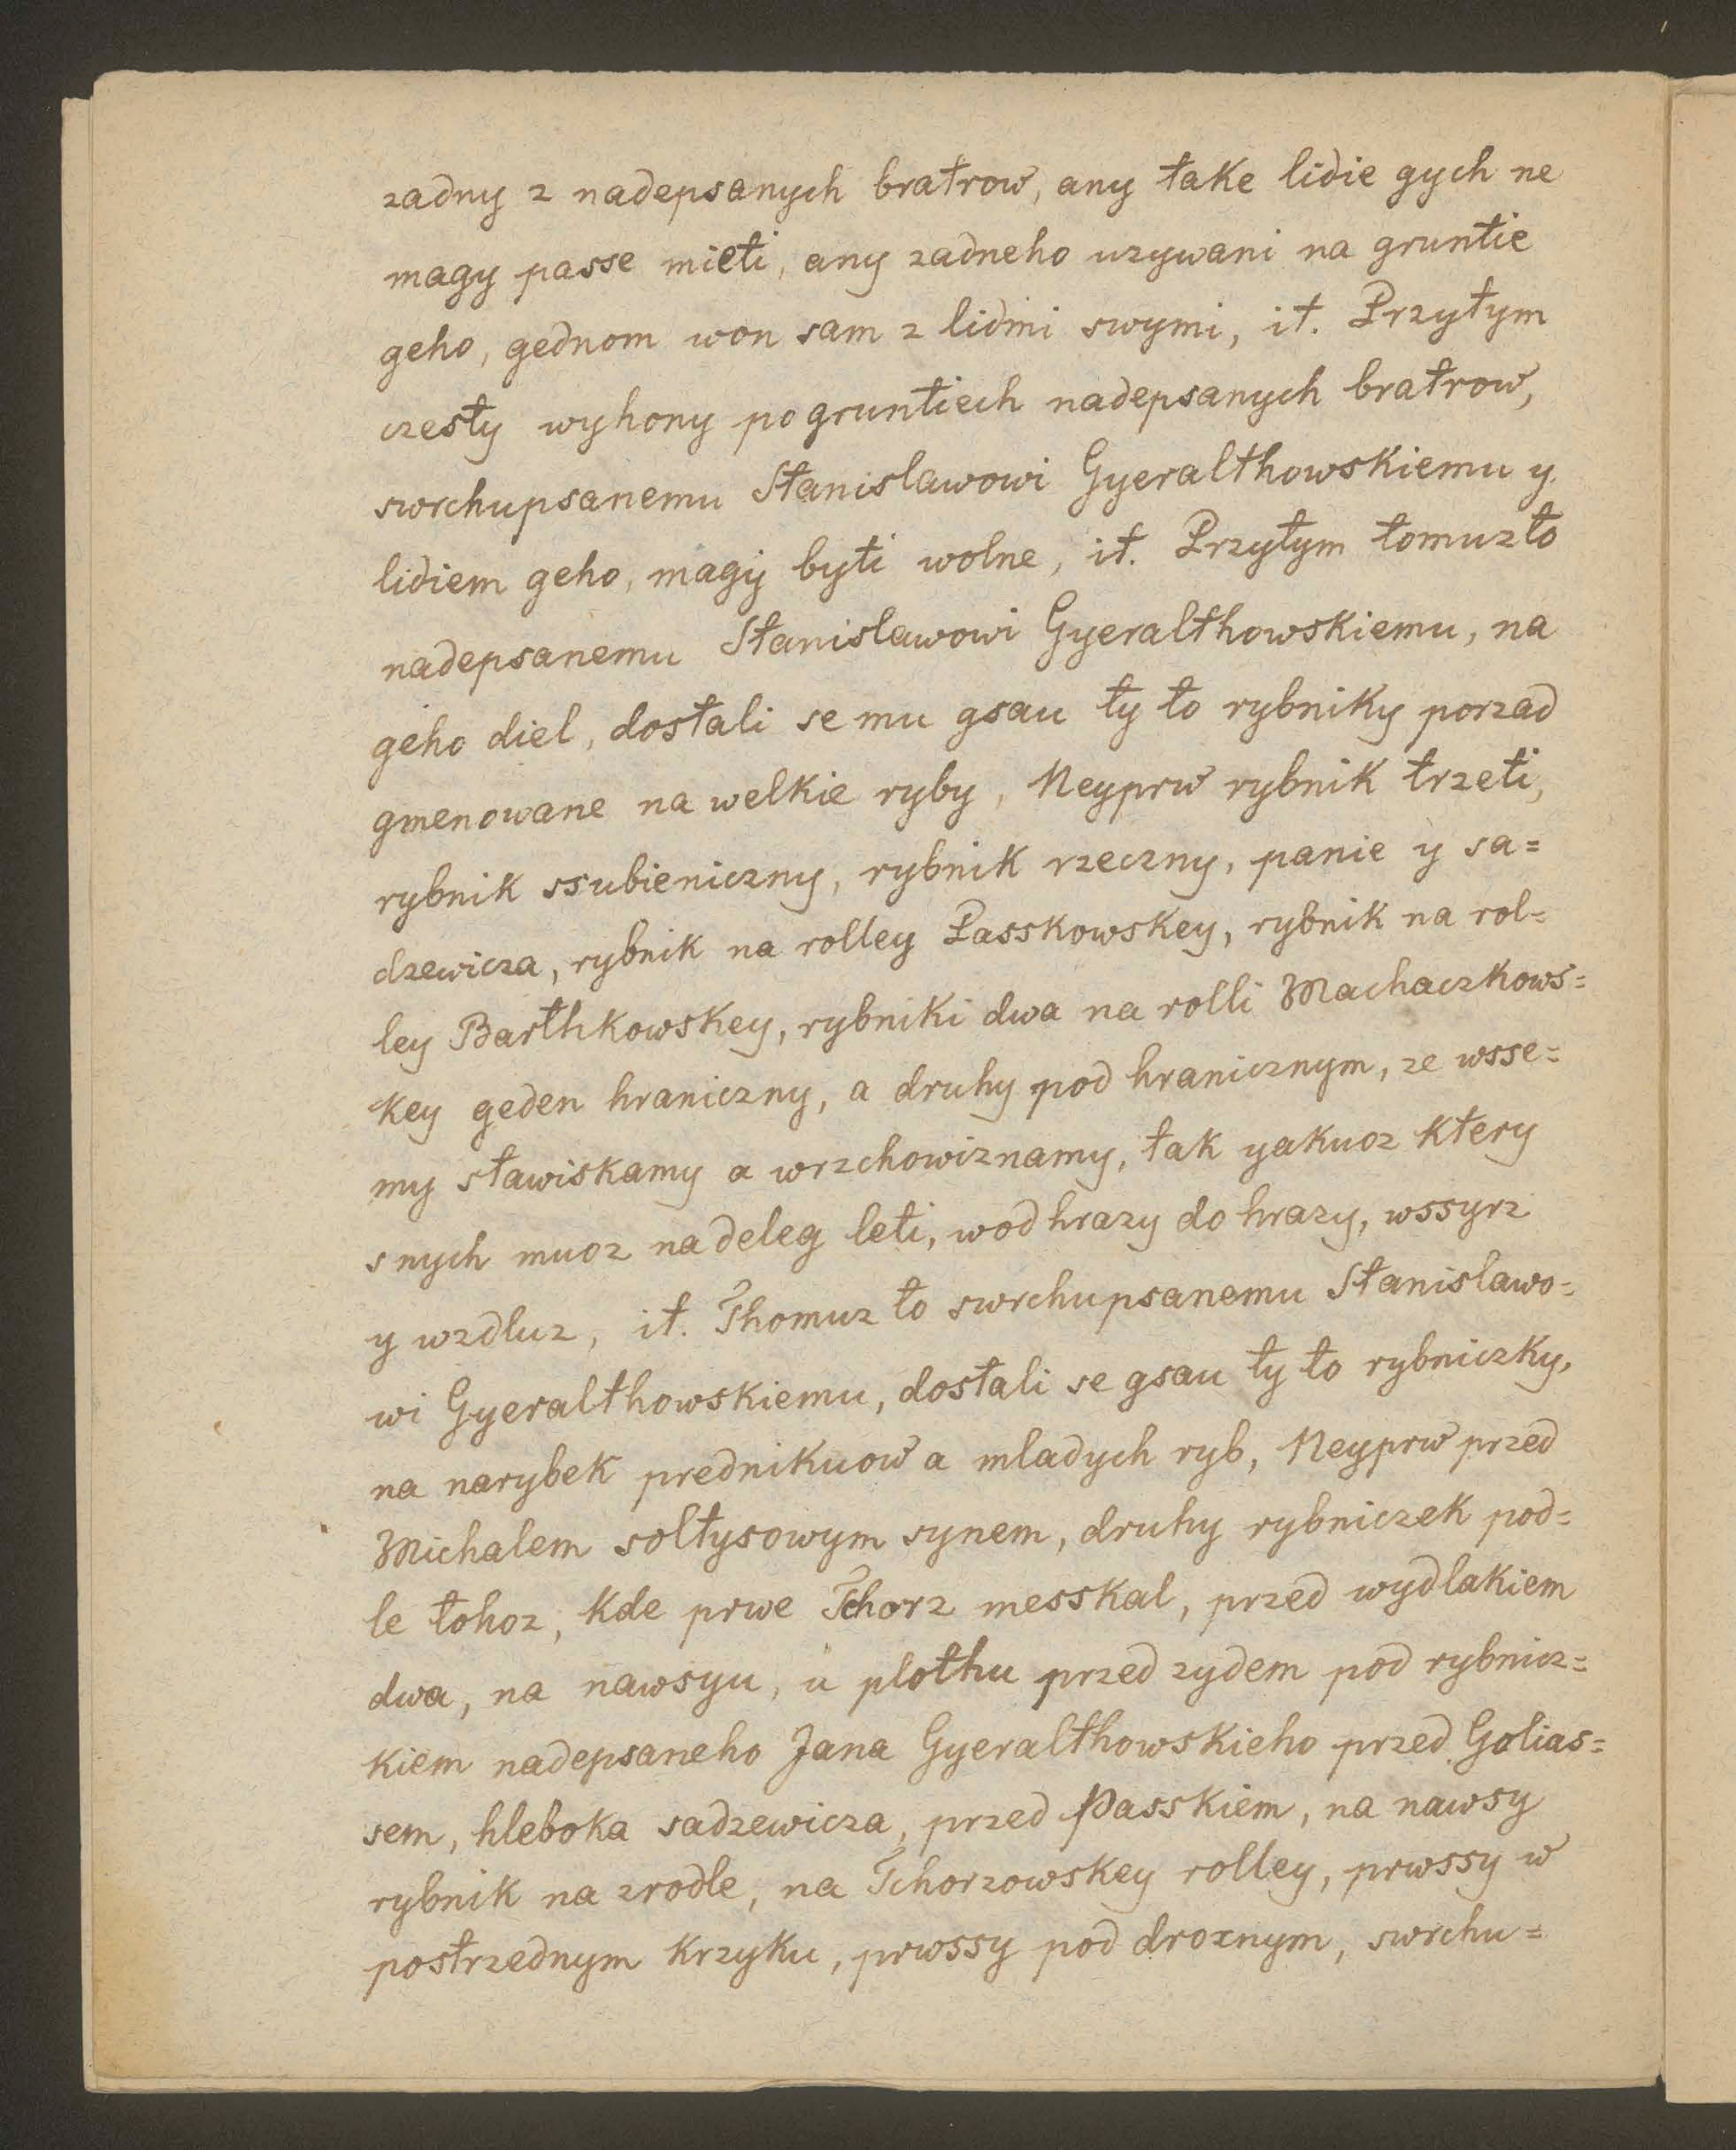 zadny z nadepsanych bratrow, any take lidie gych ne
magy passe mieti, any zadneho uzywani na gruntie
geho, gednom won sam z lidmi swymi, it. Przytym
czesty wyhony po gruntiech nadepsanych bratrow,
swrchupsanemu Stanislawowi Gyeralthowskiemu y
lidiem geho, magy byti wolne, it. Przytym tomuzto
nadepsanemu Stanislawowi Gyeralthowskiemu, na
geho diel, dostali se mu gsau ty to rybniky porzad
gmenowane na welkie ryby, Neyprw rybnik trzeti,
rybnik ssubieniczny, rybnik rzeczny, panie y sa=
dzewicza, rybnik na rolley Passkowskey, rybnik na rol=
ley Barthkowskey, rybniki dwa na rolli Machaczkows=
key geden hraniczny, a druhy pod hranicznym, ze wsse=
my stawiskamy a wrzchowiznamy, tak yakuoz ktery
s nych muoz nadeleg leti, wod hrazy do hrazy, wssyrz
y wzdluz, it. Thomuz to swrchupsanemu Stanislawo=
wi Gyeralthowskiemu, dostali se gsau ty to rybniczky,
na narybek prednikuow a mladych ryb, Neyprw przed
Michalem soltysowym synem, druhy rybniczek pod=
le tohoz, kde prwe Tchorz messkal, przed wydlakiem
dwa, na nawsyu, u plothu przed zydem pod rybnicz=
kiem nadepsaneho Jana Gyeralthowskieho przed Golias=
sem, hleboka sadzewicza, przed Passkiem, na nawsy
rybnik na zrodle, na Tchorzowskey rolley, prwssy w
postrzednym krzyku, prwssy pod droznym, swrchu=